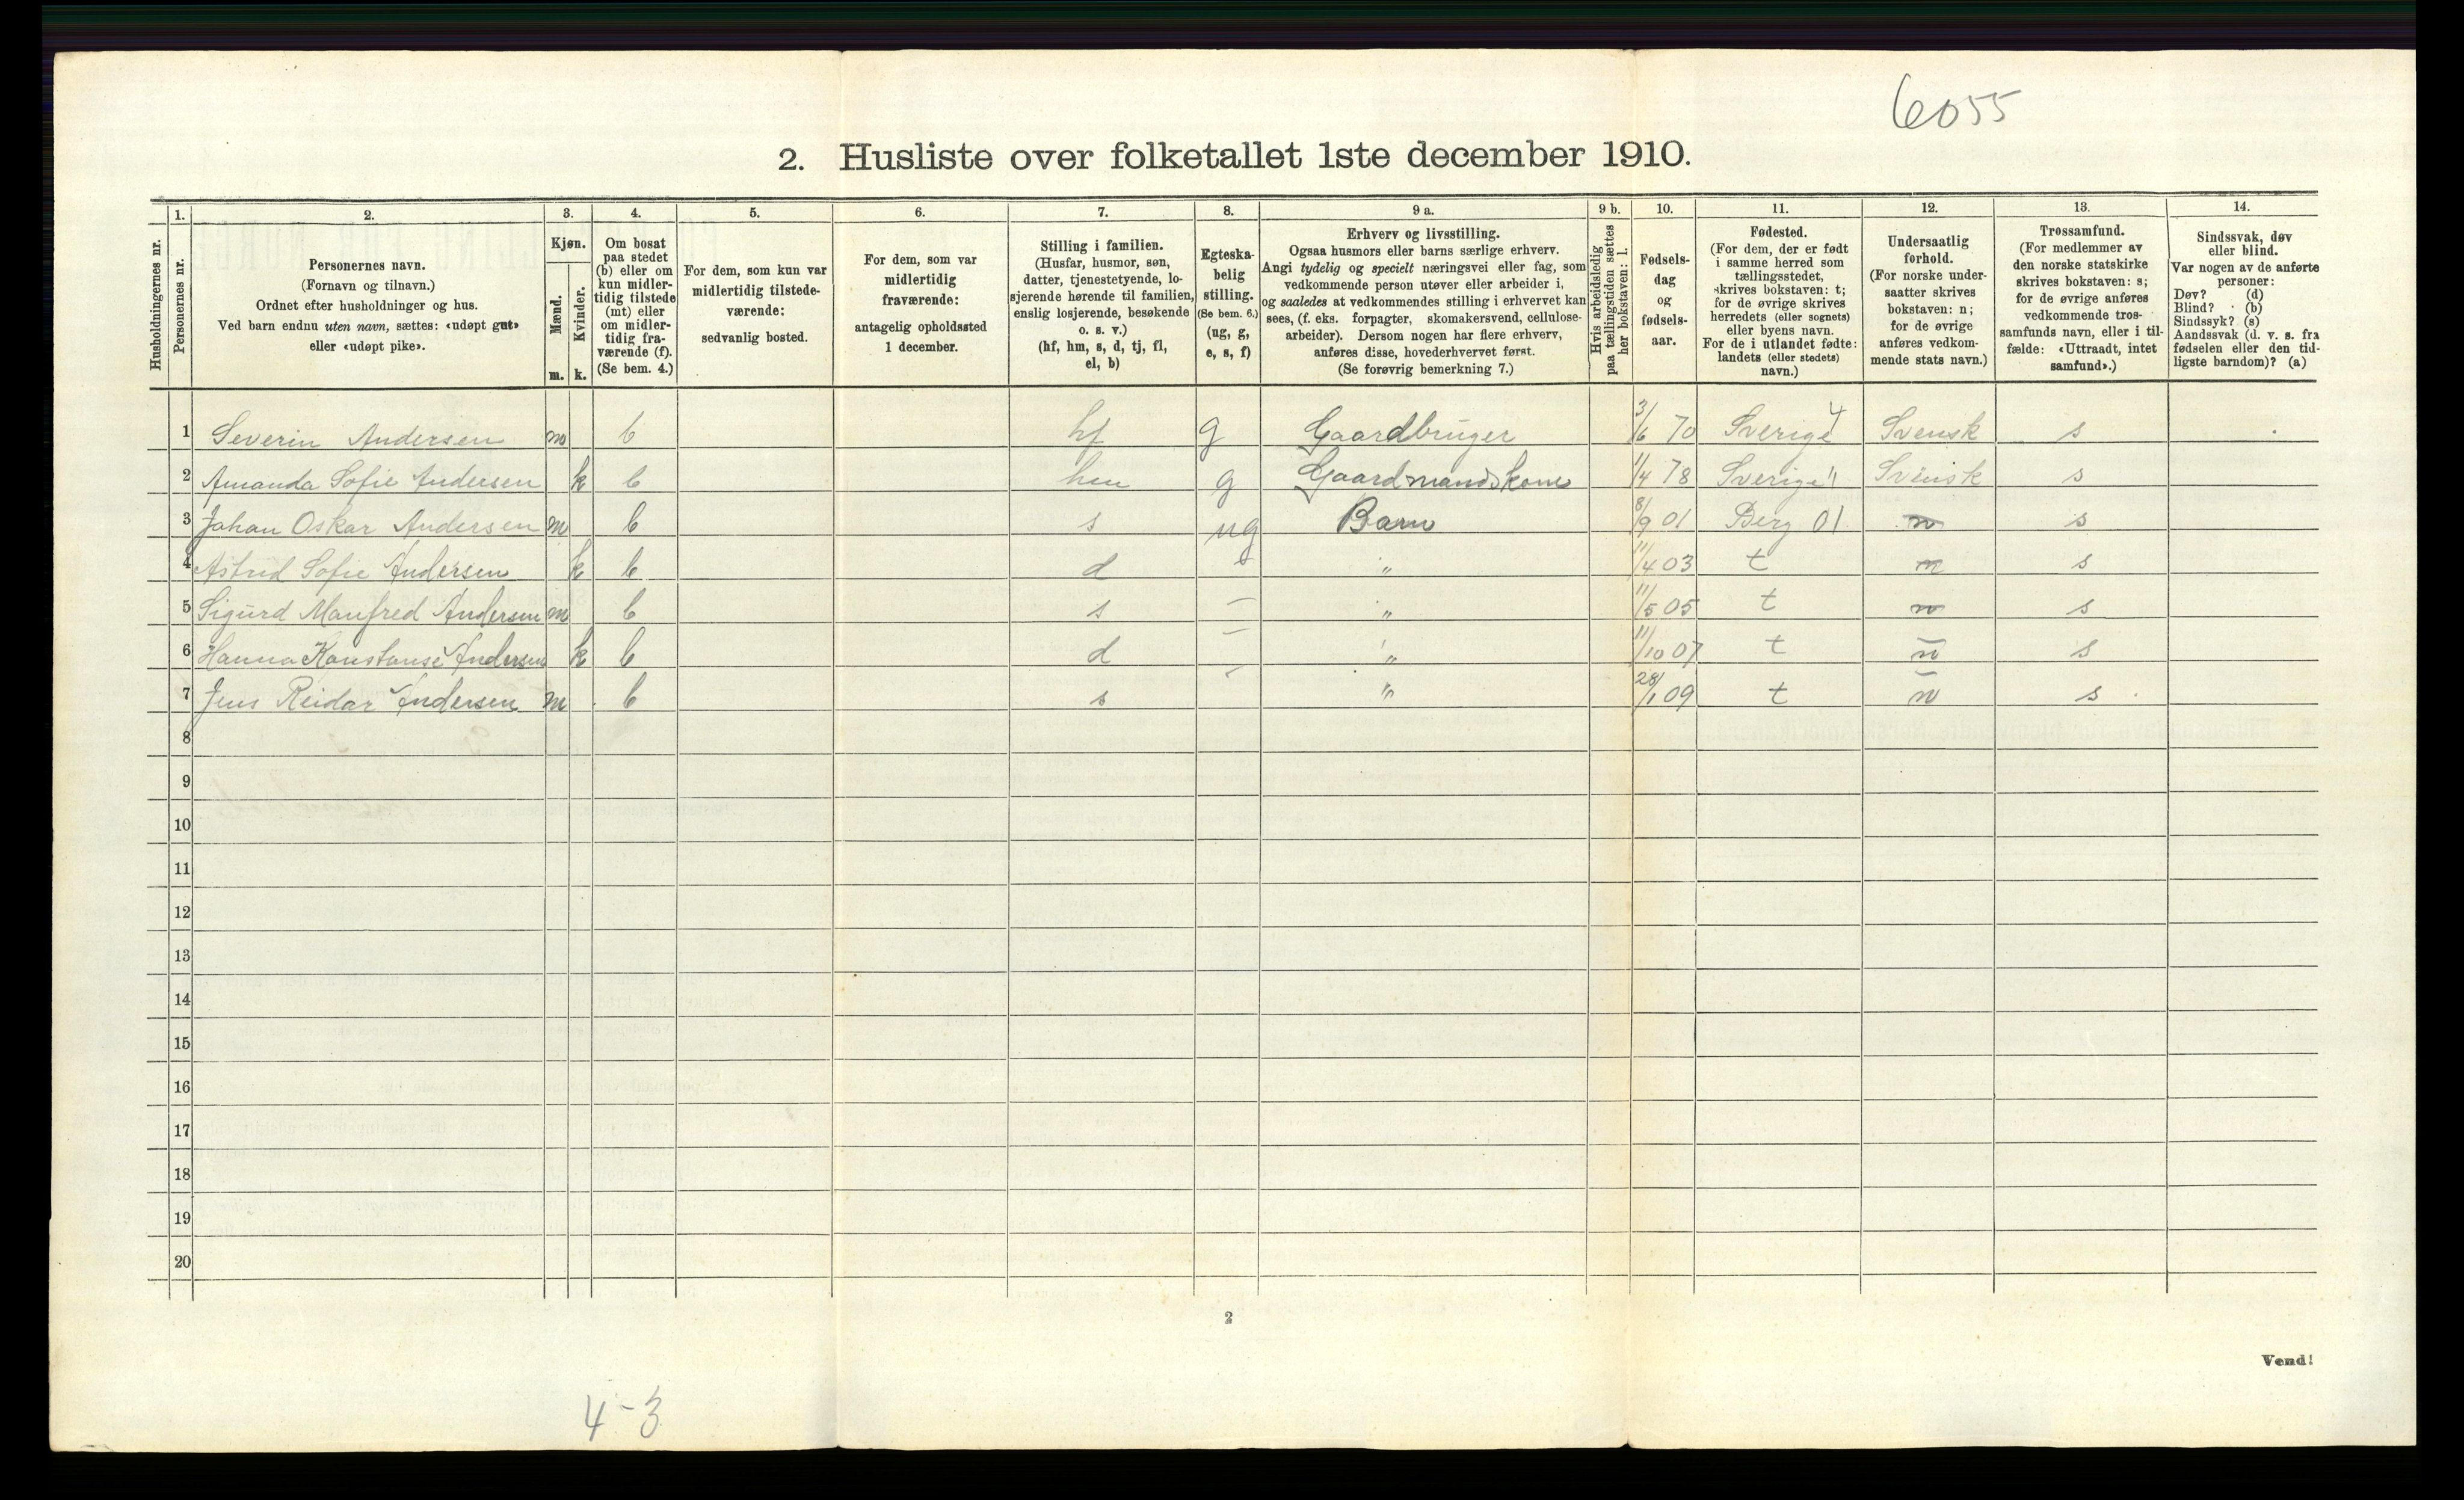 6055
2. Husliste over folketallet 1ste december 1910.
1. 2. 3. 4. 5. 6. 7. 8. 9 a. 9 b. 10. 11. 12. 13. 14.
Husholdningernes nr.
Personernes nr.
Personernes navn.
(Fornavn og tilnavn.)
Ordnet efter husholdninger og hus.
Ved barn endnu uten navn, sættes: «udøpt gut»
eller «udøpt pike».
Kjøn.
Mænd.
m.
Kvinder.
k.
Om bosat
paa stedet
(b) eller om
kun midler-
tidig tilstede
(mt) eller
om midler-
tidig fra-
værende (f).
(Se bem. 4.)
For dem, som kun var
midlertidig tilstede-
værende:
sedvanlig bosted.
For dem, som var
midlertidig
fraværende:
antagelig opholdssted
1 december.
Stilling i familien.
(Husfar, husmor, søn,
datter, tjenestetyende, lo-
sjerende hørende til familien,
enslig losjerende, besøkende
o. s. v.)
(hf, hm, s, d, tj, fl,
el, b)
Egteska-
belig
stilling.
(Se bem. 6.)
(ug, g,
e, s, f)
Erhverv og livsstilling.
Ogsaa husmors eller barns særlige erhverv.
Angi tydelig og specielt næringsvei eller fag, som
vedkommende person utøver eller arbeider i,
og saaledes at vedkommendes stilling i erhvervet kan
sees, (f. eks. forpagter, skomakersvend, cellulose-
arbeider). Dersom nogen har flere erhverv,
anføres disse, hovederhvervet først.
(Se forøvrig bemerkning 7.)
Hvis arbeidsledig
paa tællingstiden sættes
her bokstaven: l.
Fødsels-
dag
og
fødsels-
aar.
Fødested.
(For dem, der er født
i samme herred som
tællingsstedet,
skrives bokstaven: t;
for de øvrige skrives
herredets (eller sognets)
eller byens navn.
For de i utlandet fødte:
landets (eller stedets)
navn.)
Undersaatlig
forhold.
(For norske under-
saatter skrives
bokstaven: n;
for de øvrige
anføres vedkom-
mende stats navn.)
Trossamfund.
(For medlemmer av
den norske statskirke
skrives bokstaven: s;
for de øvrige anføres
vedkommende tros-
samfunds navn, eller i til-
fælde: «Uttraadt, intet
samfund».)
Sindssvak, døv
eller blind.
Var nogen av de anførte
personer:
Døv? (d)
Blind? (b)
Sindssyk? (s)
Aandssvak (d. v. s. fra
fødselen eller den tid-
ligste barndom)? (a)
1 Severin Andersen m b hf g Gaardbruger 3/6 70 Sverige Svensk s
2 Amanda Sofie Andersen k b hm g Gaardmandskone 1/4 78 Sverige Svensk s
3 Johan Oskar Andersen m b s ug Barn 8/9 01 Berg 01 n s
4 Astrid Sofie Andersen k b d " 11/4 03 t n s
5 Sigurd Manfred Andersen m b s " 11/5 05 t n s
6 Hanna Konstanse Andersen k b d " 11/10 07 t n s
7 Jens Reidar Andersen m b s " 28/1 09 t n s
8
9
10
11
12
13
14
15
16
17
18
19
20
2
Vend!
4-3